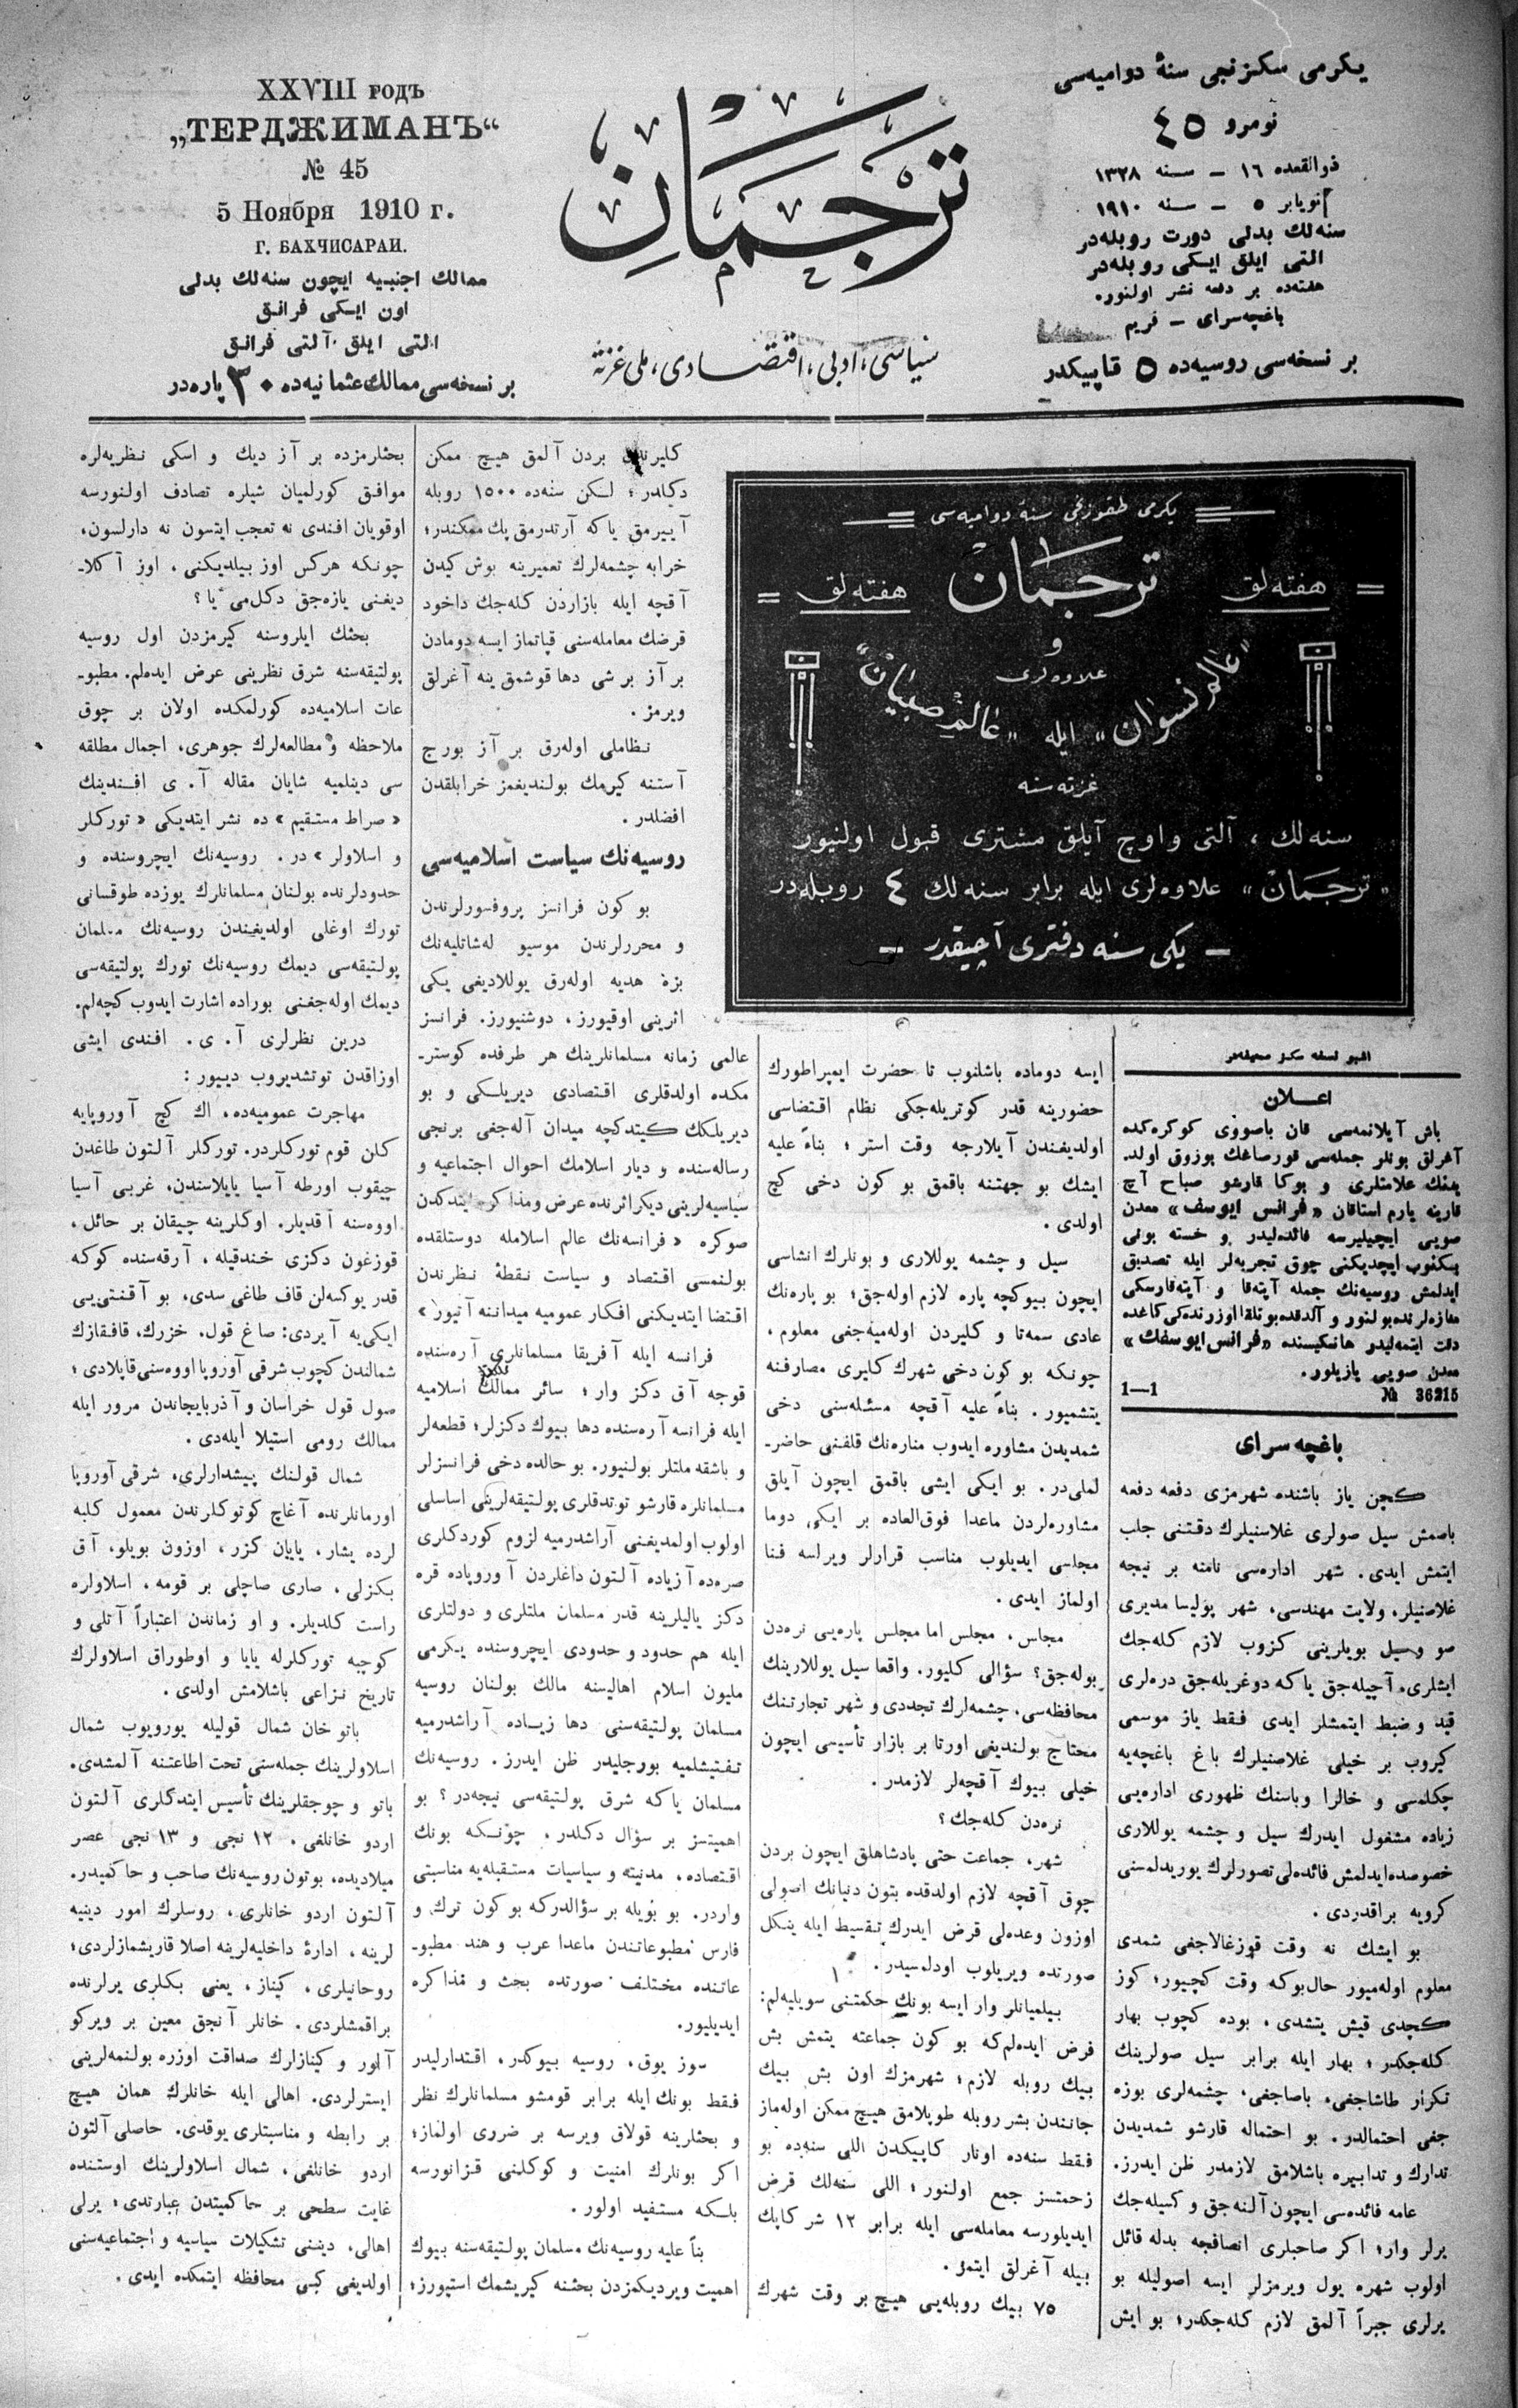 یكرمی سكزنجی سنۀ دوامیه‌سی
نومرو ٤٥
ذوالقعده ١٦ – سنه ١٣٢٨
نویابر ٥ – سنه ١٩١٠
سنه‌لك بدلی دورت روبله‌در
التی ایلق ایكی روبله‌در
هفته‌ده بر دفعه نشر اولنور.
باغچه‌سرای – قریم
بر نسخه‌سی روسیه‌ده ٥ قاپیكدر
ترجمان
سیاسی، ادبی، اقتصادی، ملی غزته
XXVIII годъ
„ТЕРДЖИМАНЪ“
№ 45
5 Ноября 1910 г.
Г. БАХЧИСАРАИ.
ممالك اجنبیه ایچون سنه‌لك بدلی
اون ایكی فرانق
التی ایلق آلتی فرانق
بر نسخه‌سی ممالك عثمانیه‌ده ٣٠ پاره‌در
یكرمی طقوزنجی سنه دوامیه‌سی
هفته‌لق ترجمان هفته‌لق
و
علاوه‌لری
«عالم نسوان» ایله «عالم صبیان»
غزته سنه
سنه‌لك ، آلتی و اوچ آیلق مشتری قبول اولنیور
«ترجمان» علاوه‌لری ایله برابر سنه‌لك ٤ روبله‌در
– یكی سنه دفتری آچیقدر –
اشبو نسخه سكز صحیفه‌در
اعــلان
باش آیلانمه‌سی قان باصووی كوكره‌كده
آغرلق بونلر جمله‌سی قورصاغك بوزوق اولد-
یغنك علامتلری و بوكا قارشو صباح آچ
قارینه یارم استاقان «فرانس ایوسف» معدن
صویی ایچیلیرسه فائده‌لیدر و خسته بونی
ایدلمش روسیه‌نك جمله آپته‌قا و آپته‌قارسكی
دقت ایتمه‌لیدر هانكیسنده «فرانس ایوسفك»
معدن صویی یازیلور.
1—1 № 36215
باغچه سرای
كچن یاز باشنده شهرمزی دفعه دفعه
باصمش سیل صولری غلاسنیلرك دقتنی جلب
ایتمش ایدی. شهر اداره‌سی نامنه بر نیچه
غلاصنیلر، ولایت مهندسی، شهر پولیسا مدیری
صو و سیل بویلرینی كزوب لازم كله‌جك
ایشلری، آچیله‌جق یاكه دوغریله‌جق دره‌لری
قید و ضبط ایتمشلر ایدی فقط یاز موسمی
كیروب بر خیلی غلاصنیلرك باغ باغچه‌یه
چكلمسی و خالرا وباسنك ظهوری اداره‌یی
زیاده مشغول ایدرك سیل و چشمه یوللاری
خصوصده ایدلمش فائده‌لی تصورلرك یوریدلمسنی
كرویه براقدردی.
بو ایشك نه وقت قوزغالاجغی شمدی
معلوم اوله‌میور حال‌بوكه وقت كچیور؛ كوز
كچدی قیش یتشدی، بوده كچوب بهار
كله‌جكدر؛ بهار ایله برابر سیل صولرینك
تكرار طاشاجغی، باصاجغی، چشمه‌لری بوزه
جغی احتمالدر. بو احتماله قارشو شمدیدن
تدارك و تدابیره باشلامق لازمدر ظن ایدرز.
عامه فائده‌سی ایچون آلنه‌جق و كسیله‌جك
یرلر وار؛ اكر صاحبلری انصافجه بدله قائل
اولوب شهره یول ویرمزلر ایسه اصولیله بو
یرلری جبراً آلمق لازم كله‌جكدر؛ بو ایش
ایسه دوماده باشلنوب تا حضرت ایمپراطورك
حضورینه قدر كوتریله‌جكی نظام اقتضاسی
اولدیغندن آیلارجه وقت استر؛ بناءً علیه
ایشك بو جهتنه باقمق بو كون دخی كچ
اولدی.
سیل و چشمه یوللاری و بونلرك انشاسی
ایچون بیوكچه پاره لازم اوله‌جق؛ بو پاره‌نك
عادی سمه‌تا و كلیردن اوله‌میه‌جغی معلوم،
چونكه بو كون دخی شهرك كلیری مصارفنه
یتشمیور. بناءً علیه آقچه مسئله‌سنی دخی
شمدیدن مشاوره ایدوب مناره‌نك قلفنی حاضر-
لملی‌در. بو ایكی ایشی باقمق ایچون آیلق
مشاوره‌لردن ماعدا فوق‌العاده بر ایكی دوما
مجلسی ایدیلوب مناسب قرارلر ویرلسه فنا
اولماز ایدی.
مجلس، مجلس اما مجلس پاره‌یی نره‌دن
بوله‌جق؟ سؤالی كلیور. واقعا سیل یوللارینك
محافظه‌سی، چشمه‌لرك تجددی و شهر تجارتنك
محتاج بولندیغی اورتا بر بازار تأسیسی ایچون
خیلی بیوك آقچه‌لر لازمدر.
نره‌دن كله‌جك؟
شهر، جماعت حتی پادشاهلق ایچون بردن
چوق آقچه لازم اولدقده بتون دنیانك اصولی
اوزون وعده‌لی قرض ایدرك تقسیط ایله ینكل
صورتده ویریلوب اودله‌سیدر.
بیلمیانلر وار ایسه بونك حكمتنی سویلیه‌لم:
فرض ایده‌لم‌كه بو كون جماعته یتمش بش
بیك روبله لازم؛ شهرمزك اون بش بیك
جانندن بشر روبله طوپلامق هیچ ممكن اوله‌ماز
فقط سنه‌ده اونار كاپیكدن اللی سنه‌ده بو
زحمتسز جمع اولنور؛ اللی سنه‌لك قرض
ایدیلورسه معامله‌سی ایله برابر ١٢ شر كاپك
بیله آغرلق ایتمز.
٧٥ بیك روبله‌یی هیچ بر وقت شهرك
كلیرندن بردن آلمق هیچ ممكن
دكلدر؛ لكن سنه‌ده ١٥٠٠ روبله
آییرمق یاكه آرتدرمق پك ممكندر؛
خرابه چشمه‌لرك تعمیرینه بوش كیدن
آقچه ایله بازاردن كله‌جك داخود
قرضك معامله‌سنی قپاتماز ایسه دومادن
بر آز بر شی دها قوشمق ینه آغرلق
ویرمز.
نظاملی اوله‌رق بر آز بورج
آستنه كیرمك بولندیغمز خرابلقدن
افضلدر.
روسیه‌نك سیاست اسلامیه‌سی
بو كون فرانسز پروفسورلرندن
و محررلرندن موسیو له‌شاتلیه‌نك
بزه هدیه اوله‌رق یوللادیغی یكی
اثرینی اوقیورز، دوشنیورز. فرانسز
عالمی زمانه مسلمانلرینك هر طرفده كوستر-
مكده اولدقلری اقتصادی دیریلكی و بو
دیریلكك كیتدكچه میدان آله‌جغی برنجی
رساله‌سنده و دیار اسلامك احوال اجتماعیه و
سیاسیه‌لرینی دیكر اثرنده عرض و مذاكره ایتدكدن
صوكره «فرانسه‌نك عالم اسلامله دوستلقده
بولنمسی اقتصاد و سیاست نقطۀ نظرندن
اقتضا ایتدیكنی افكار عمومیه میداننه آتیور»
فرانسه ایله آفریقا مسلمانلری آره‌سنده
قوجه آق دكز وار؛ سائر ممالك اسلامیه
ایله فرانسه آره‌سنده دها بیوك دكزلر؛ قطعه‌لر
و باشقه ملتلر بولنیور. بو حالده دخی فرانسزلر
مسلمانلره قارشو توتدقلری پولتیقه‌لرینی اساسلی
اولوب اولمدیغنی آراشدرمیه لزوم كوردكلری
صره‌ده آزیاده آلتون داغلردن آوروپاده قره
دكز یالیلرینه قدر مسلمان ملتلری و دولتلری
ایله هم حدود و حدودی ایچروسنده یكرمی
ملیون اسلام اهالیسنه مالك بولنان روسیه
مسلمان پولتیقه‌سنی دها زیاده آراشدرمیه
تفتیشلمیه بورجلیدر ظن ایدرز. روسیه‌نك
مسلمان یاكه شرق پولتیقه‌سی نیجه‌در؟ بو
اهمیتسز بر سؤال دكلدر، چونكه بونك
اقتصاده، مدنیته و سیاسیات مستقبله‌یه مناسبتی
واردر. بو بویله بر سؤالدركه بو كون ترك و
فارس مطبوعاتندن ماعدا عرب و هند مطبو-
عاتنده مختلف صورتده بحث و مذاكره
ایدیلیور.
سوز یوق، روسیه بیوكدر، اقتدارلیدر
فقط بونك ایله برابر قومشو مسلمانلرك نظر
و بحثلرینه قولاق ویرسه بر ضرری اولماز؛
اكر بونلرك امنیت و كوكلنی قزانورسه
بلكه مستفید اولور.
بناً علیه روسیه‌نك مسلمان پولتیقه‌سنه بیوك
اهمیت ویردیكمزدن بحثنه كیریشمك استیورز؛
بحثلرمزده بر آز دیك و اسكی نظریه‌لره
موافق كورلمیان شیلره تصادف اولنورسه
اوقویان افندی نه تعجب ایتسون نه دارلسون،
چونكه هركس اوز بیلدیكنی، اوز آكلا-
دیغنی یازه‌جق دكل‌می یا؟
بحثك ایلروسنه كیرمزدن اول روسیه
پولتیقه‌سنه شرق نظرینی عرض ایده‌لم. مطبو-
عات اسلامیه‌ده كورلمكده اولان بر چوق
ملاحظه و مطالعه‌لرك جوهری، اجمال مطلقه
سی دینلمیه شایان مقاله آ. ی افندینك
«صراط مستقیم» ده نشر ایتدیكی «توركلر
و اسلاولر» در. روسیه‌نك ایچروسنده و
حدودلرنده بولنان مسلمانلرك یوزده طوقسانی
تورك اوغلی اولدیغندن روسیه‌نك مسلمان
پولتیقه‌سی دیمك روسیه‌نك تورك پولتیقه‌سی
دیمك اوله‌جغنی بوراده اشارت ایدوب كچه‌لم.
درین نظرلری آ. ی. افندی ایشی
اوزاقدن توتشدیروب دییور:
مهاجرت عمومیه‌ده، اك كچ آوروپایه
كلن قوم توركلردر. توركلر آلتون طاغدن
چیقوب اورطه آسیا یایلاسندن، غربی آسیا
اووه‌سنه آقدیلر. اوكلرینه چیقان بر حائل،
قوزغون دكزی خندقیله، آرقه‌سنده كوكه
قدر یوكسه‌لن قاف طاغی سدی، بو آقنتی‌یی
ایكی‌یه آیردی: صاغ قول. خزرك، قافقازك
شمالندن كچوب شرقی آوروپا اووه‌سنی قاپلادی؛
صول قول خراسان و آذربایجاندن مرور ایله
ممالك رومی استیلا ایله‌دی.
شمال قولنك پیشدارلری، شرقی آوروپا
اورمانلرنده آغاچ كوتوكلرندن معمول كلبه
لرده یشار، یایان كزر، اوزون بویلو، آق
بكزلی، صاری صاچلی بر قومه، اسلاولره
راست كلدیلر. و او زماندن اعتباراً آتلی و
كوچبه توركلرله یایا و اوطوراق اسلاولرك
تاریخ نزاعی باشلامش اولدی.
باتو خان شمال قولیله یورویوب شمال
اسلاولرینك جمله‌سنی تحت اطاعتنه آلمشدی.
باتو و چوجقلرینك تأسیس ایتدكلری آلتون
اردو خانلغی، ١٢ نجی و ١٣ نجی عصر
میلادیده، بوتون روسیه‌نك صاحب و حاكمیدر.
آلتون اردو خانلری، روسلرك امور دینیه
لرینه، ادارۀ داخلیه‌لرینه اصلا قاریشمازلردی؛
روحانیلری، كیناز، یعنی بكلری یرلرنده
براقمشلردی. خانلر آنجق معین بر ویركو
آلور و كینازلرك صداقت اوزره بولنمه‌لرینی
ایسترلردی. اهالی ایله خانلرك همان هیچ
بر رابطه و مناسبتلری یوقدی. حاصلی آلتون
اردو خانلغی، شمال اسلاولرینك اوستنده
غایت سطحی بر حاكمیتدن عبارتدی؛ یرلی
اهالی، دینی تشكیلات سیاسیه و اجتماعیه‌سنی
اولدیغی كبی محافظه ایتمكده ایدی.